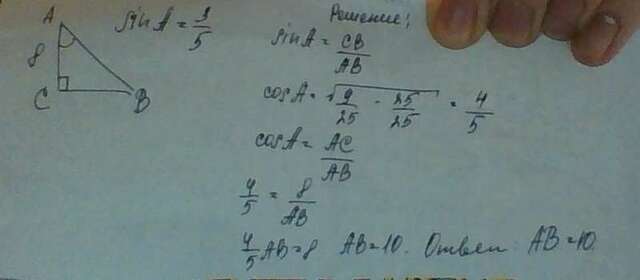 A
8
C
B
sin A = 3/5
Решение:
sin A = CB/AB
cos A = √(9/25 - 25/25) = 4/5
cos A = AC/AB
4/5 = 8/AB
4/5 AB = 8 AB = 10. Ответ: AB = 10.